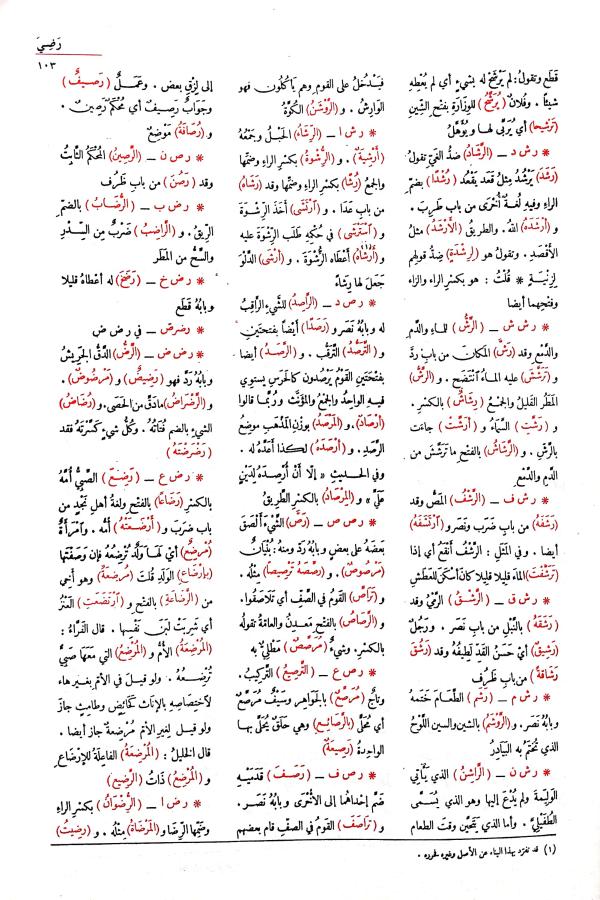 رَضِيَ
١٠٣
قَطَع وتقولُ: لم يَرْضَخْ له بشيءٍ أي لم يُعْطِهِ
شيئاً . وفلانٌ (يُرَشَّحُ) للوِزارةِ بفتح الشِّينِ
(تَرْشيحاً) أي يُرَبَّى لها ويُؤَهَّلُ
* ر ش د – (الرَّشادُ) ضدُّ الغَيِّ تقولُ
(رَشَدَ) يَرْشُدُ مِثلُ قعَد يَقْعُد (رُشْداً) بضمِّ
الراءِ وفيه لُغةٌ أُخرَى من باب طَرِبَ .
و (أرْشَدَهُ) اللهُ. والطريقُ (الأَرْشَدُ) مثلُ
الأقْصَدِ . وتقولُ هو (لِرِشْدَةٍ) ضِدُّ قولهِم
لِزِنْيَةٍ * قُلْتُ : هو بكسرِ الراءِ والزاءِ
وفتحِهما أيضا
* ر ش ش – (الرَّشُّ) للماءِ والدَّمِ
والدَّمْعِ وقد (رَشَّ) المكانَ من باب ردَّ
و (تَرَشَّشَ) عليه الماءُ انْتَضَحَ . و (الرَّشُّ)
المَطَرُ القليلُ والجمْعُ (رِشاشٌ) بالكسْرِ .
و (رَشَّتِ) السَّماءُ و (أرَشَّتْ) جاءت
بالرَّشِّ . و (الرَّشاشُ) بالفتح ما تَرَشَّشَ من
الدمِ والدَّمْعِ
* ر ش ف – (الرَّشْفُ) المَصُّ وقد
(رَشَفَهُ) من باب ضَرَبَ ونَصَر و (ارْتَشَفَهُ)
أيضا . وفي المَثَلِ : الرَّشْفُ أنْقَعُ أي إذا
(تَرَشَّفْتَ) الماءَ قليلا قليلا كانَ أسْكنَ للعَطَشِ
* ر ش ق – (الرَّشْقُ) الرَّمْيُ وقد
(رَشَقَهُ) بالنَّبْلِ من باب نَصَر . ورَجُلٌ
(رَشِيقٌ) أي حَسَنُ القَدِّ لَطِيفُهُ وقد (رَشُقَ)
(رَشَاقةً) من باب ظَرُف
* ر ش م – (رَشَم) الطَّعامَ خَتَمه
وبابُه نَصَر . و (الرَّوْشَمُ) بالشينِ والسينِ اللَّوْحُ
الذي تُخْتَمُ به البَيَادِرُ
* ر ش ن – (الرَّاشِنُ) الذي يأتي
الوَلِيمَةَ ولم يُدْعَ إليها وهو الذي يُسَمَّى
الطُّفَيْليَّ . وأما الذي يَتَحَيَّنُ وقتَ الطعامِ
فيَدْخُلُ على القومِ وهم يأكلون فهو
الوارِشُ . و (الرَّوْشَنُ) الكُوَّةُ
* ر ش ا – (الرِّشاءُ) الحَبْلُ وجمْعُهُ
(أرْشِيَةٌ) . و (الرُّشْوةُ) بكسْرِ الراءِ وضمِّها
والجمعُ (رُشًا) بكسرِ الراءِ وضمِّها وقد (رَشَاهُ)
من باب عَدَا . و (ارْتَشَى) أخَذَ الرِّشْوَةَ
و (اسْتَرْشَى) في حُكْمِه طَلَب الرِّشْوَةَ عليه
و (أرشاهُ) أعطاه الرُّشْوَةَ . و (أرْشَى) الدَّلْوَ
جَعَلَ لها رِشاءً
* ر ص د – (الراصِدُ) للشَّيءِ الرَّاقِبُ
له وبابُه نَصَر و (رَصَدًا) أيضاً بفتحتين
و (التَّرَصُّدُ) التَّرَقُّبُ . و (الرَّصَدُ) أيضا
بفتحتين القَوْمُ يَرْصُدون كالحَرَسِ يَستوي
فيه الواحِدُ والجَمْعُ والمؤنَّثُ ورُبَّما قالوا
(أرْصادٌ). و (المَرْصَدُ) بوزنِ المَذْهَبِ موضِعُ
الرَّصَدِ . و (أرْصَدَهُ) لكذا أعَدَّه له .
وفي الحديثِ « إلَّا أنْ أُرْصِدَهُ لِدَيْنٍ
عليَّ » و (المِرْصَادُ) بالكسرِ الطَّريقُ
* ر ص ص – (رَصَّ) الشَّيءَ ألْصَقَ
بَعْضَه على بعضٍ وبابُه رَدَّ ومنه: بُنْيانٌ
(مَرْصُوصٌ) . و (رَصَّصَهُ تَرْصِيصاً) مِثْلُه .
و (تَرَاصَّ) القَومُ في الصَّفِّ أي تَلاصَقُوا.
و (الرَّصاصُ) بالفتحِ مَعدِنٌ والعامَّةُ تقولُه
بالكسرِ. وشيءٌ (مُرَصَّصٌ) مَطْلِيٌّ به
* ر ص ع – (التَّرْصِيعُ) التَّركِيبُ .
وتاجٌ (مُرَصَّعٌ) بالجَواهرِ وسَيْفٌ مُرَصَّعٌ
أي مُحَلًّى (بالرَّصائِعِ) وهي حَلَقٌ يُحَلَّى بها
الواحدةُ (رَصِيعةٌ)
* ر ص ف – (رَصَفَ) قَدَمَيْهِ
ضَمَّ إحداهُما إلى الأُخْرَى وبابُهُ نَصَر .
و (تَراصَفَ) القَومُ في الصَّفِّ قام بعضُهم
إلى لِزْقِ بعضٍ . وعَمَلٌ (رَصيفٌ)
وجَوابٌ رَصِيفٌ أي مُحْكَمٌ رَصِينٌ .
و (رُصَافَةُ) مَوْضِعٌ
* ر ص ن – (الرَّصِينُ) المُحْكَمُ الثابتُ
وقد (رَصُنَ) من باب ظَرُف
* ر ض ب – (الرُّضَابُ) بالضمِّ
الرِّيقُ . و (الرَّاضِبُ) ضَرْبٌ من السِّدْرِ
والسَّحُّ من المَطَر
* ر ض خ – (رَضَخَ) له أعْطاهُ قليلا
وبابُهُ قَطَع
* رضرض – في ر ض ض
* ر ض ض – (الرَّضُّ) الدَّقُّ الجَرِيشُ
وبابُهُ رَدَّ فهو (رَضِيضٌ) و (مَرْضُوضٌ) .
و (الرَّضْراضُ) ما دَقَّ من الحَصَى. و (رُضَاضُ)
الشيءِ بالضمِّ فُتَاتُهُ . وكُلُّ شيءٍ كَسَّرْتَه فقد
(رَضْرَضْتَهُ)
* ر ض ع – (رَضِعَ) الصَّبيُّ أُمَّهُ
بالكسْرِ (رَضَاعًا) بالفتحِ ولغةُ أهلِ نجْدٍ من
باب ضَرَب و (أَرْضَعَتْهُ) أُمُّه . وامرأةٌ
(مُرْضِعٌ) أيْ لها وَلَدٌ تُرْضِعُهُ فإن وَصَفْتَها
(بإرْضَاعِ) الوَلَدِ قُلتَ (مُرْضِعَةٌ) وهو أخي
من (الرَّضَاعَةِ) بالفتحِ و (ارْتَضَعَتِ) العَنْزُ
أي شَرِبَتْ لَبَنَ نَفْسِها . قال الفَرّاءُ:
(المُرْضِعَةُ) الأُمُّ و (المُرْضِعُ) التي مَعَها صَبيٌّ
تُرْضِعُهُ . ولو قيل في الأمِّ بغير هاء
لاختِصاصِهِ بالإناثِ كحائِضٍ وطامِثٍ جازَ
ولو قيل لِغيرِ الأمِّ مُرْضِعَةٌ جاز أيضا .
قال الخليلُ : (المُرْضِعَةُ) الفاعِلةُ للإرْضاعِ
و (المُرْضِعُ) ذاتُ (الرَّضِيعِ)
* ر ض ا – (الرِّضْوانُ) بكسرِ الراءِ
وضَمِّها الرِّضا و (المَرْضاةُ) مِثْلُه . و (رَضِيتُ)
(١) قد تفرّد بهذا البناء عن الأصل وغيره فحرره .